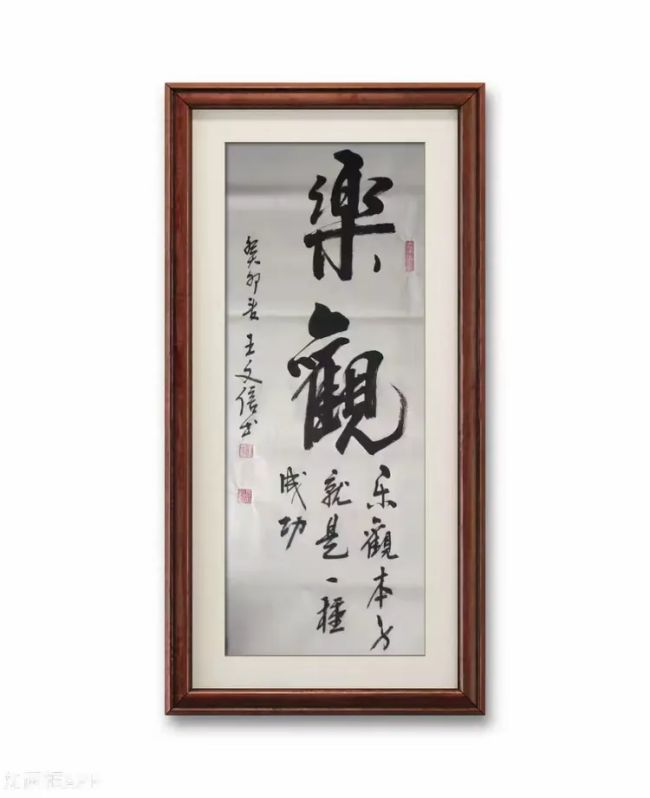 樂觀
乐觀本身
就是一種
成功
癸卯春 王文信书